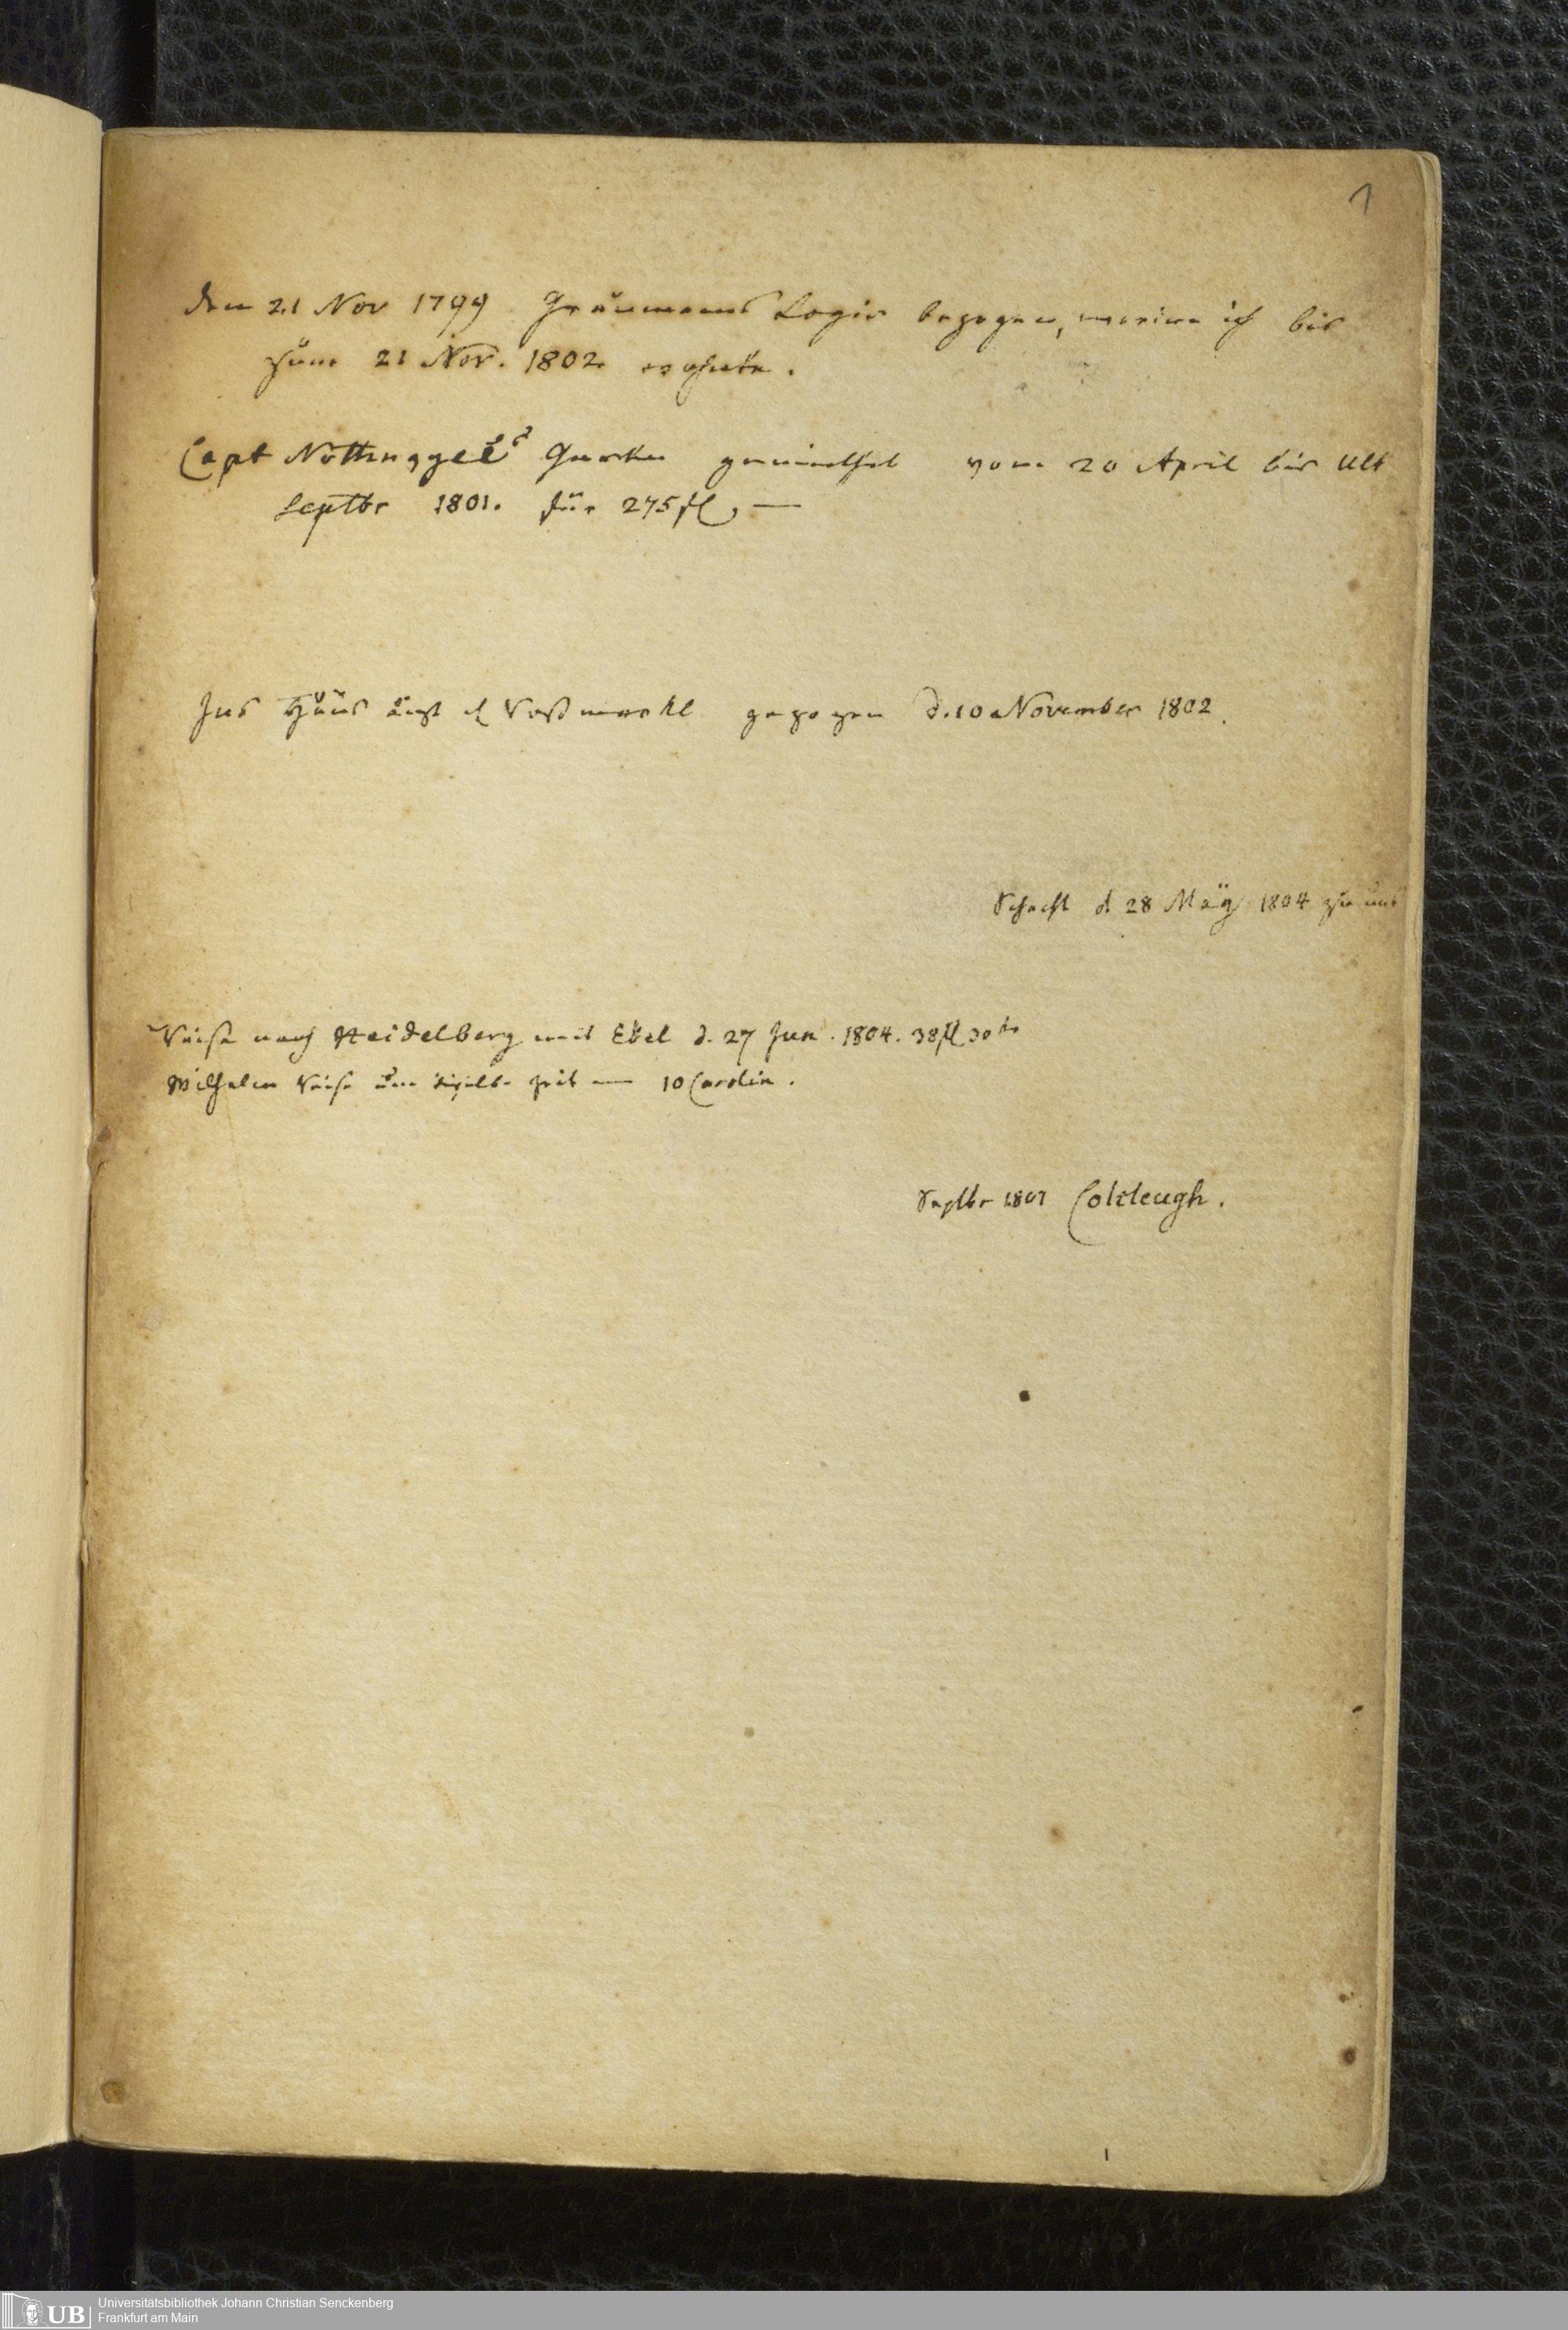 1
den 21 Nov 1799 Graumanns Logie bezogen, worinn ich bis
zum 21 Nov. 1802 wohnte.
Capt Nothnaggels Garten gemiethet vom 20 April bis Ult
Septbr 1801. für 275 fl —
Ins Haus auf d Roßmarkt gezogen d. 10 November 1802.
d 28 May 1804 zu uns
Reise nach Heidelberg mit Ebel d. 27 Jun. 1804. 38 fl 30 kr
Wilhelm Reise um dieselbe Zeit — 10 Carolin.
Septbr 1807 Coltleugh.
UB
Universitätsbibliothek Johann Christian Senckenberg
Frankfurt am Main